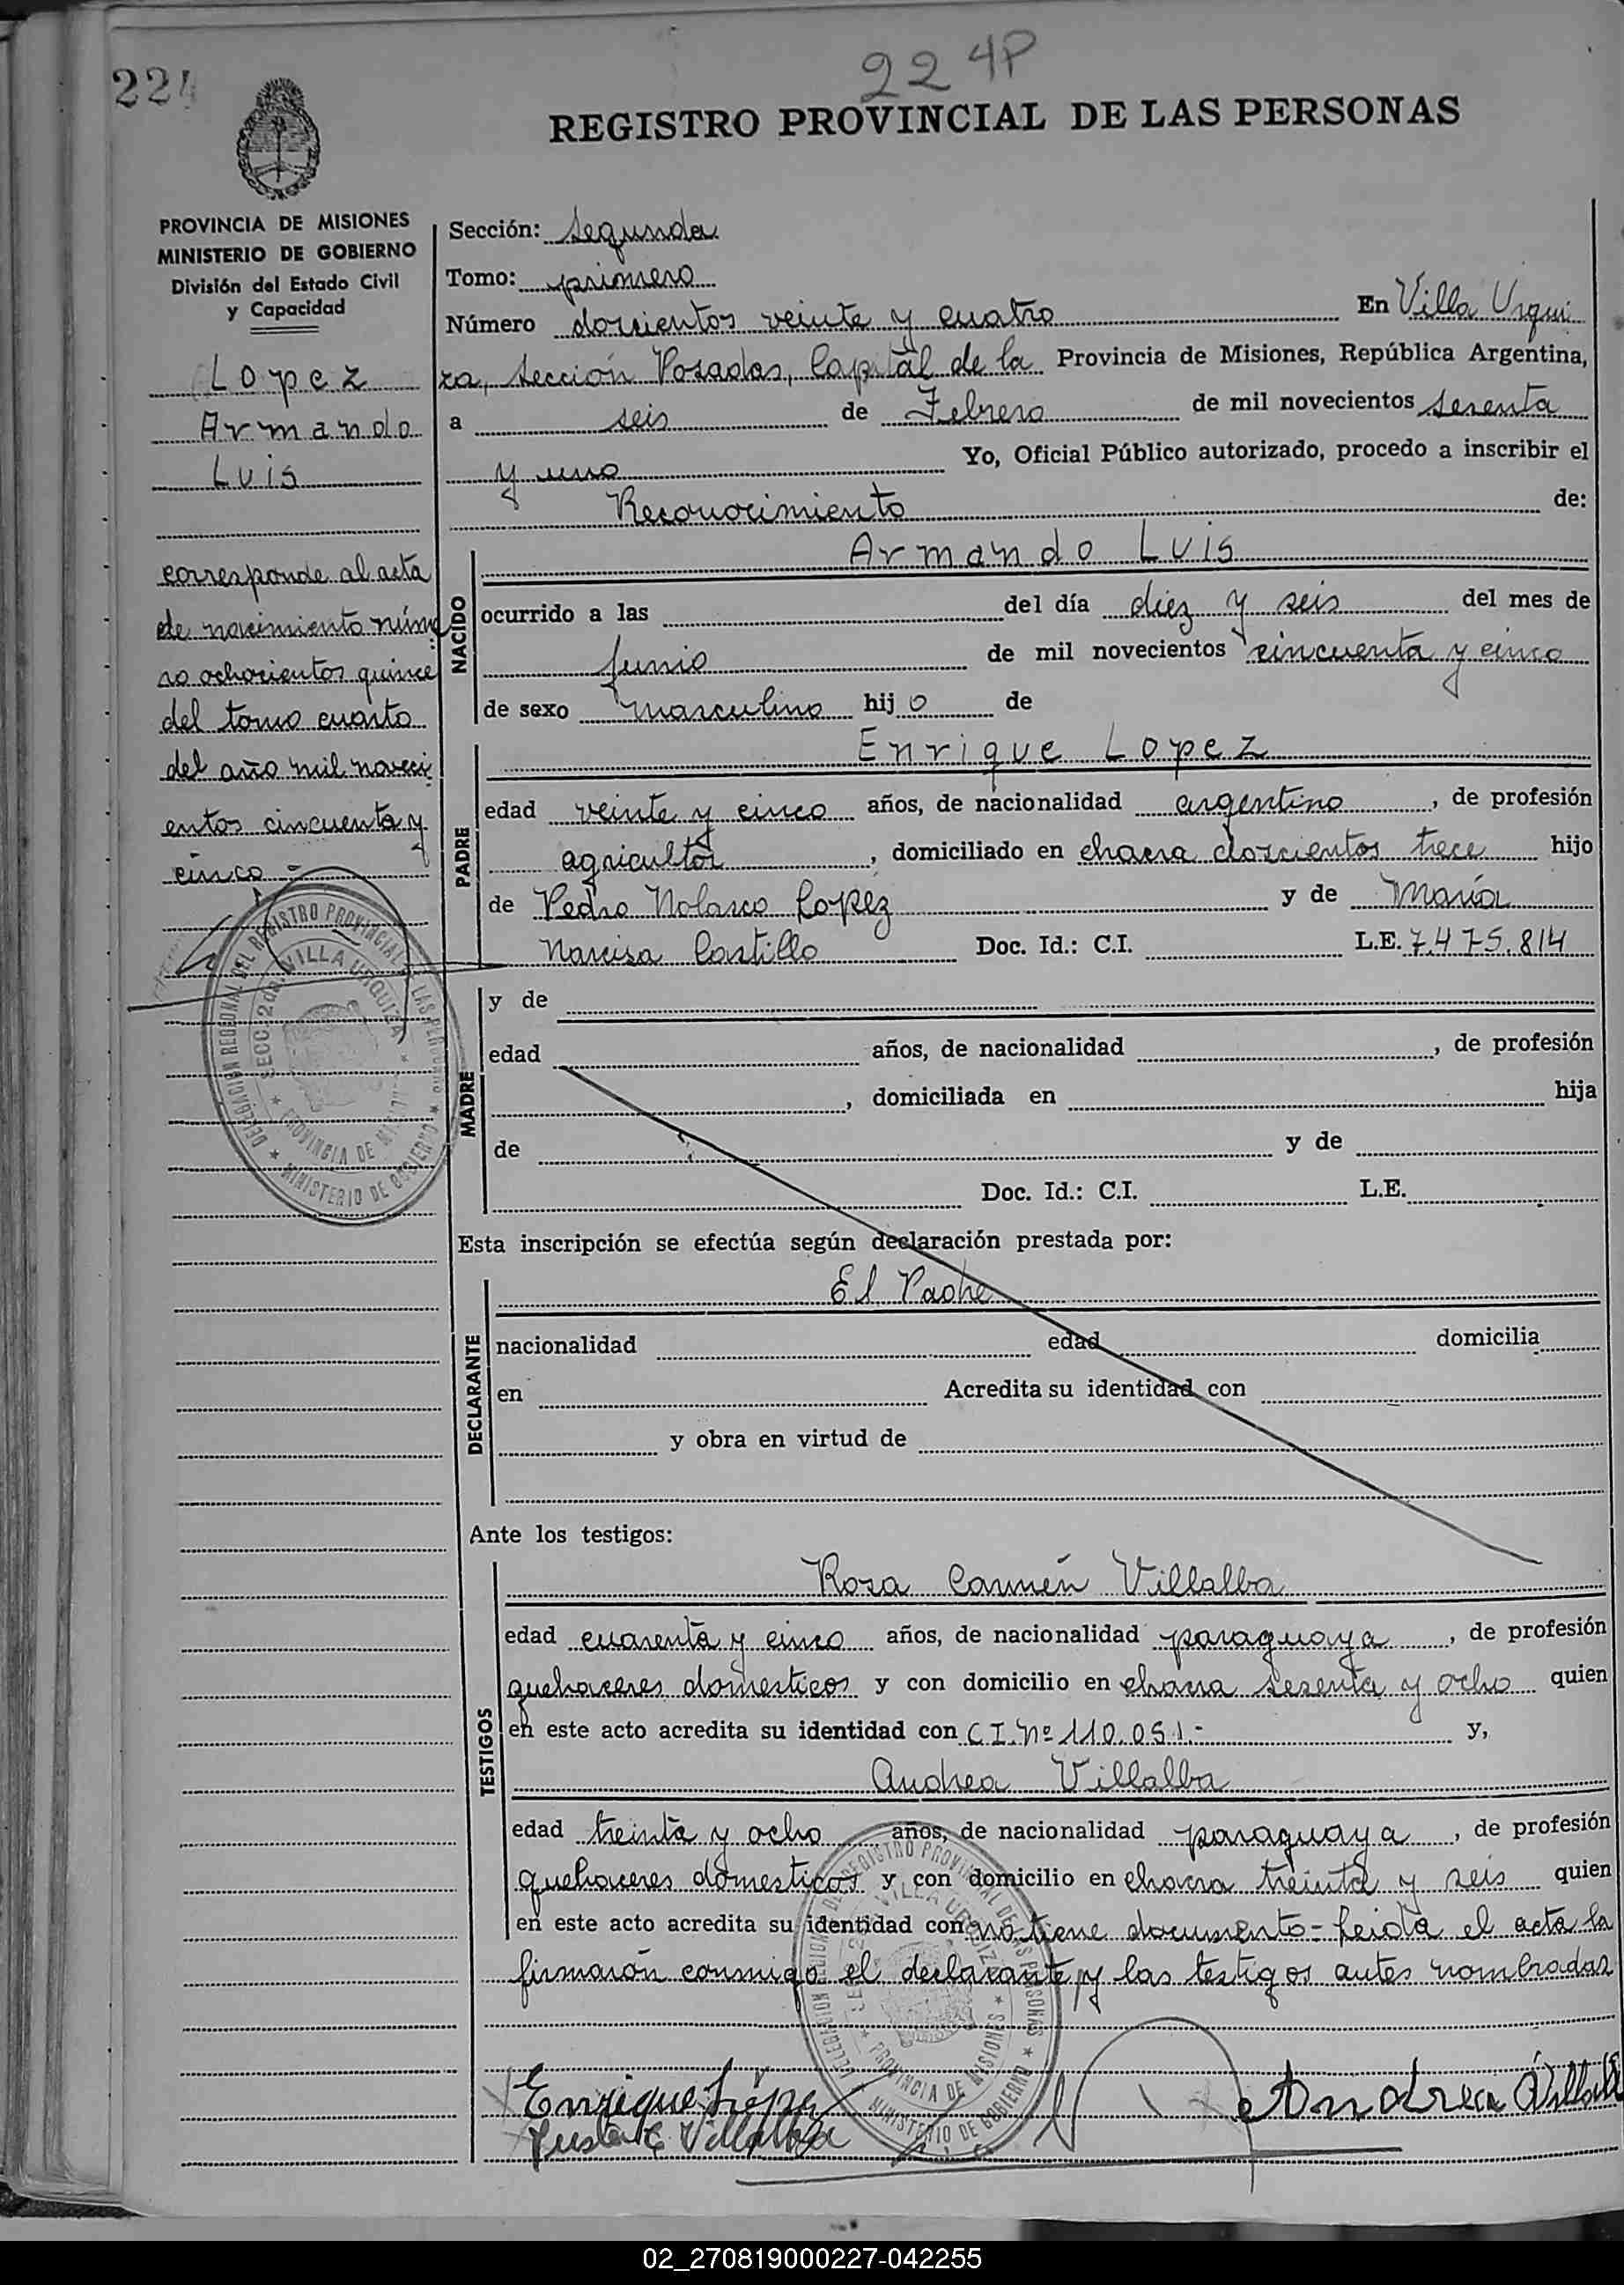 224
224P
REGISTRO PROVINCIAL DE LAS PERSONAS
PROVINCIA DE MISIONES
MINISTERIO DE GOBIERNO
División del Estado Civil
y Capacidad
Lopez
Armando
Luis
corresponde al acta
de nacimiento núme
ro ochocientos quince
del tomo cuarto
del año mil noveci
entos cincuenta y
cinco -
DELEGACIÓN REGIONAL DEL REGISTRO PROVINCIAL DE LAS PERSONAS
SECC. 2da. VILLA URQUIZA
PROVINCIA DE MISIONES
MINISTERIO DE GOBIERNO
Sección: Segunda
Tomo: primero
Número doscientos veinte y cuatro En Villa Urqui
za, Sección Posadas, Capital de la Provincia de Misiones, República Argentina,
a seis de Febrero de mil novecientos setenta
y uno Yo, Oficial Público autorizado, procedo a inscribir el
Reconocimiento de:
NACIDO
Armando Luis
ocurrido a las del día diez y seis del mes de
Junio de mil novecientos cincuenta y cinco
de sexo masculino hijo de
PADRE
Enrique Lopez
edad veinte y cinco años, de nacionalidad argentino, de profesión
agricultor, domiciliado en chacra doscientos trece hijo
de Pedro Nolasco Lopez y de María
Narcisa Castillo Doc. Id.: C.I. L.E. 7.475.814
MADRE
y de
edad años, de nacionalidad , de profesión
, domiciliada en hija
de y de
Doc. Id.: C.I. L.E.
Esta inscripción se efectúa según declaración prestada por:
DECLARANTE
El Padre
nacionalidad edad domicilia
en Acredita su identidad con
y obra en virtud de
Ante los testigos:
TESTIGOS
Rosa Carmén Villalba
edad cuarenta y cinco años, de nacionalidad paraguaya, de profesión
quehaceres domesticos y con domicilio en chacra sesenta y ocho quien
en este acto acredita su identidad con C.I. Nº 110.051.- y,
Andrea Villalba
edad treinta y ocho años, de nacionalidad paraguaya, de profesión
quehaceres domesticos y con domicilio en chacra treinta y seis quien
en este acto acredita su identidad con no tiene documento = Leida el acta la
firmarón conmigo el declarante y las testigos antes nombradas
DELEGACION REGIONAL DEL REGISTRO PROVINCIAL DE LAS PERSONAS
SECC. 2da. VILLA URQUIZA
PROVINCIA DE MISIONES
MINISTERIO DE GOBIERNO
Enrique López
Andrea Villalba
Villalba
02_270819000227-042255